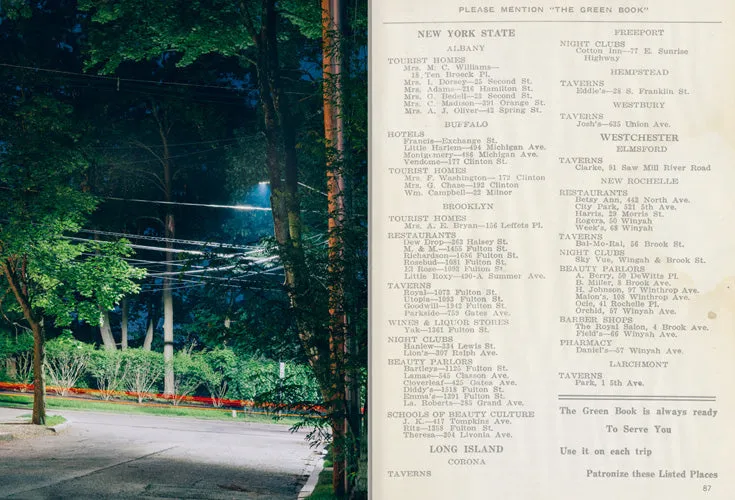 PLEASE MENTION "THE GREEN BOOK"
NEW YORK STATE
ALBANY
TOURIST HOMES
Mrs. M. C. Williams—
18 Ten Broeck Pl.
Mrs. I. Dorsey—25 Second St.
Mrs. Adams—216 Hamilton St.
Mrs. G. Bedell—23 Second St.
Mrs. C. Madison—391 Orange St.
Mrs. A. J. Oliver—42 Spring St.
BUFFALO
HOTELS
Francis—Exchange St.
Little Harlem—494 Michigan Ave.
Montgomery—486 Michigan Ave.
Vendome—177 Clinton St.
TOURIST HOMES
Mrs. F. Washington—172 Clinton
Mrs. G. Chase—192 Clinton
Wm. Campbell—22 Milnor
BROOKLYN
TOURIST HOMES
Mrs. A. E. Bryan—156 Leffets Pl.
RESTAURANTS
Dew Drop—363 Halsey St.
M. & M.—1455 Fulton St.
Richardson—1686 Fulton St.
Rosebud—1681 Fulton St.
El Rose—1093 Fulton St.
Little Roxy—490-A Summer Ave.
TAVERNS
Royal—1073 Fulton St.
Utopia—1093 Fulton St.
Goodwill—1942 Fulton St.
Parkside—759 Gates Ave.
WINES & LIQUOR STORES
Yak—1361 Fulton St.
NIGHT CLUBS
Hanlew—334 Lewis St.
Lion's—307 Ralph Ave.
BEAUTY PARLORS
Bartleys—1125 Fulton St.
Lamae—545 Classon Ave.
Cloverleaf—425 Gates Ave.
Diddy's—1518 Fulton St.
Emma's—1391 Fulton St.
La Roberts—285 Grand Ave.
SCHOOLS OF BEAUTY CULTURE
J. K.—417 Tompkins Ave.
Ritz—1358 Fulton St.
Theresa—304 Livonia Ave.
LONG ISLAND
CORONA
TAVERNS
FREEPORT
NIGHT CLUBS
Cotton Inn—77 E. Sunrise
Highway
HEMPSTEAD
TAVERNS
Eddie's—28 S. Franklin St.
WESTBURY
TAVERNS
Josh's—635 Union Ave.
WESTCHESTER
ELMSFORD
TAVERNS
Clarke, 91 Saw Mill River Road
NEW ROCHELLE
RESTAURANTS
Betsy Ann, 442 North Ave.
City Park, 521 5th Ave.
Harris, 29 Morris St.
Rogers, 50 Winyah
Week's, 68 Winyah
TAVERNS
Bal-Mo-Ral, 56 Brook St.
NIGHT CLUBS
Sky Vue, Wingah & Brook St.
BEAUTY PARLORS
A. Berry, 50 DeWitts Pl.
B. Miller, 8 Brook Ave.
H. Johnson, 97 Winthrop Ave.
Malon's, 108 Winthrop Ave.
Ocie, 41 Rochelle Pl.
Orchid, 57 Winyah Ave.
BARBER SHOPS
The Royal Salon, 4 Brook Ave.
Field's—66 Winyah Ave.
PHARMACY
Daniel's—57 Winyah Ave.
LARCHMONT
TAVERNS
Park, 1 5th Ave.
The Green Book is always ready
To Serve You
Use it on each trip
Patronize these Listed Places
87